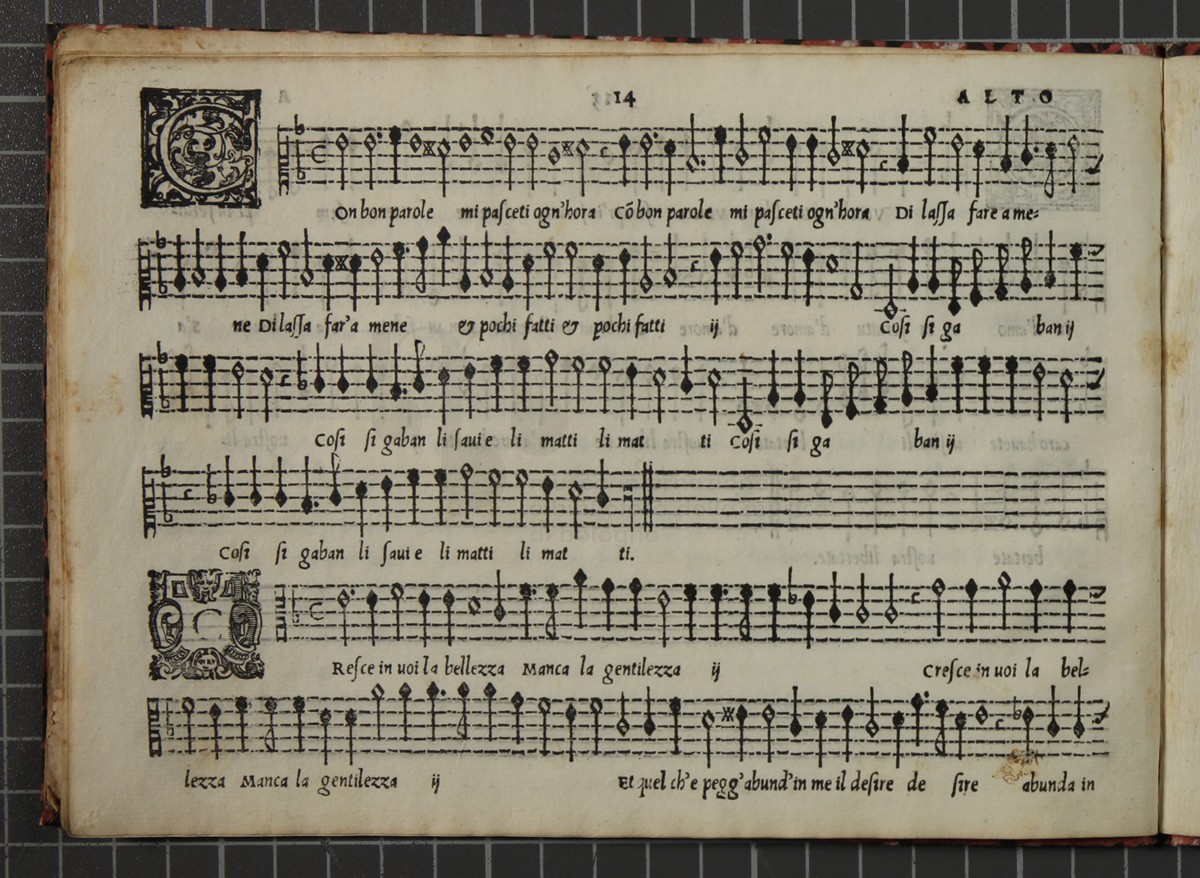 14 ALTO
COn bon parole mi paſceti ogn'hora Cõ bon parole mi paſceti ogn'hora Di laſſa fare a me=
ne Di laſſa far'a mene & pochi fatti & pochi fatti ij Coſi ſi ga ban ij
Coſi ſi gaban li ſaui e li matti li mat ti Coſi ſi ga ban ij
Coſi ſi gaban li ſaui e li matti li mat ti.
CReſce in uoi la bellezza Manca la gentilezza ij Creſce in uoi la bel=
lezza Manca la gentilezza ij Et quel ch'e pegg'abund'in me il deſire de ſire abunda in